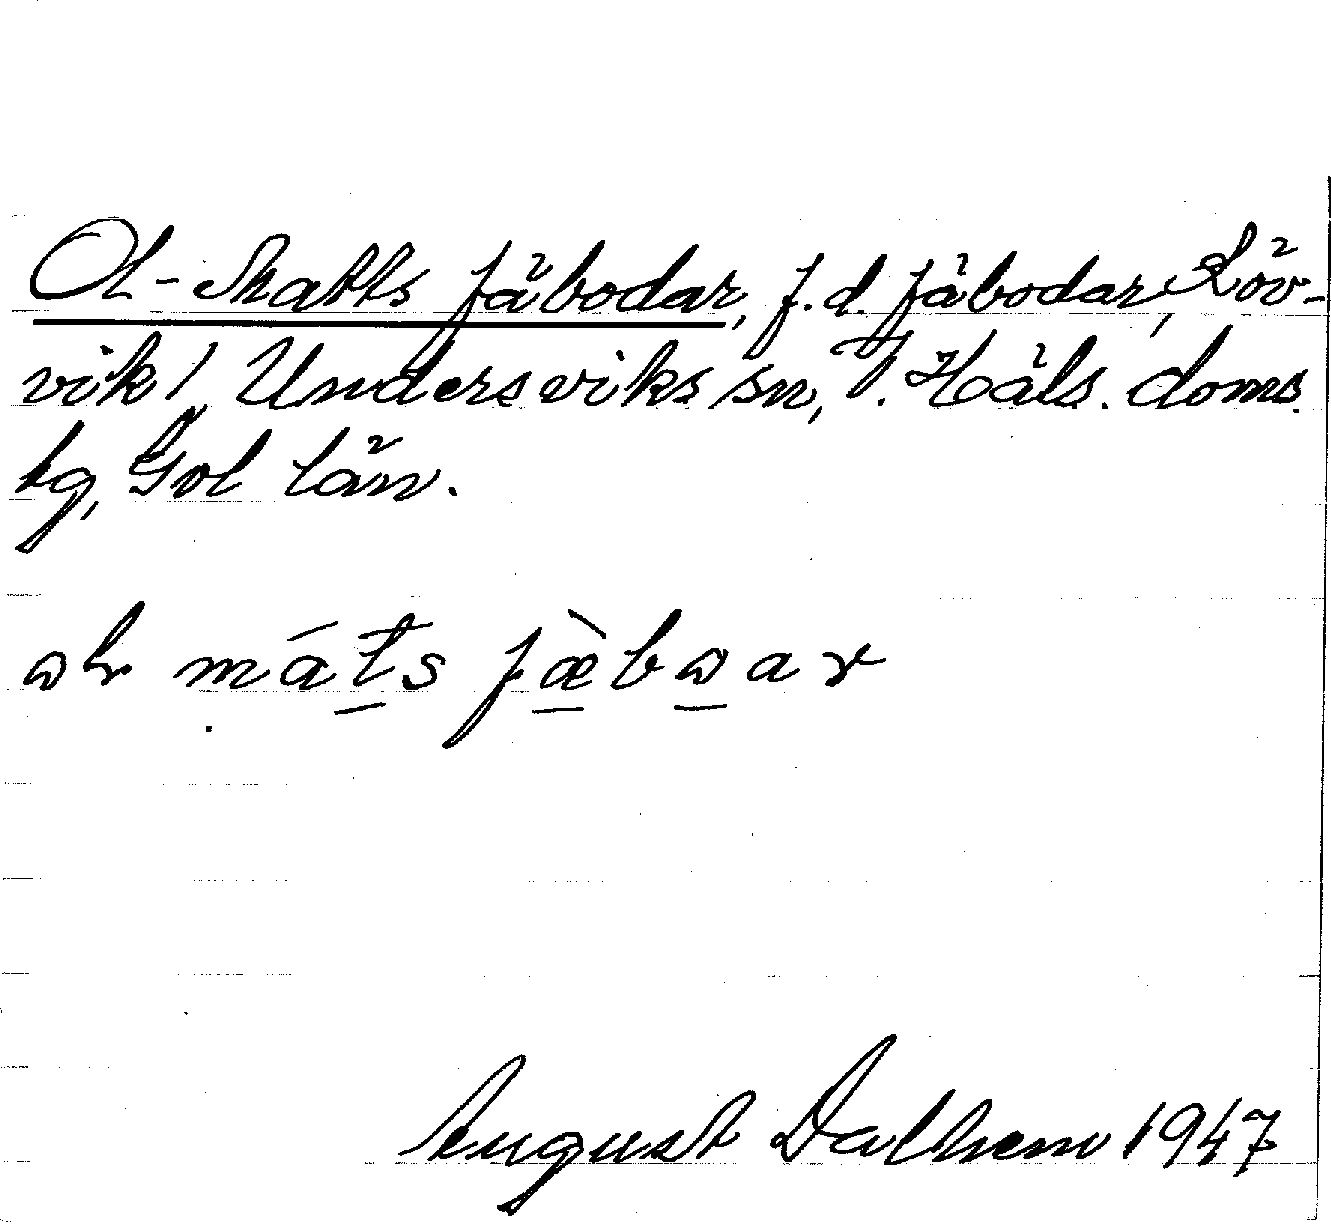 Ol-Matts fäbodar, f.d. fäbodar, Löv-
vik, Undersviks sn, V. Häls. doms.
tg, Gvl län.
máts fæ̀bɷar
August Dalhem 1947